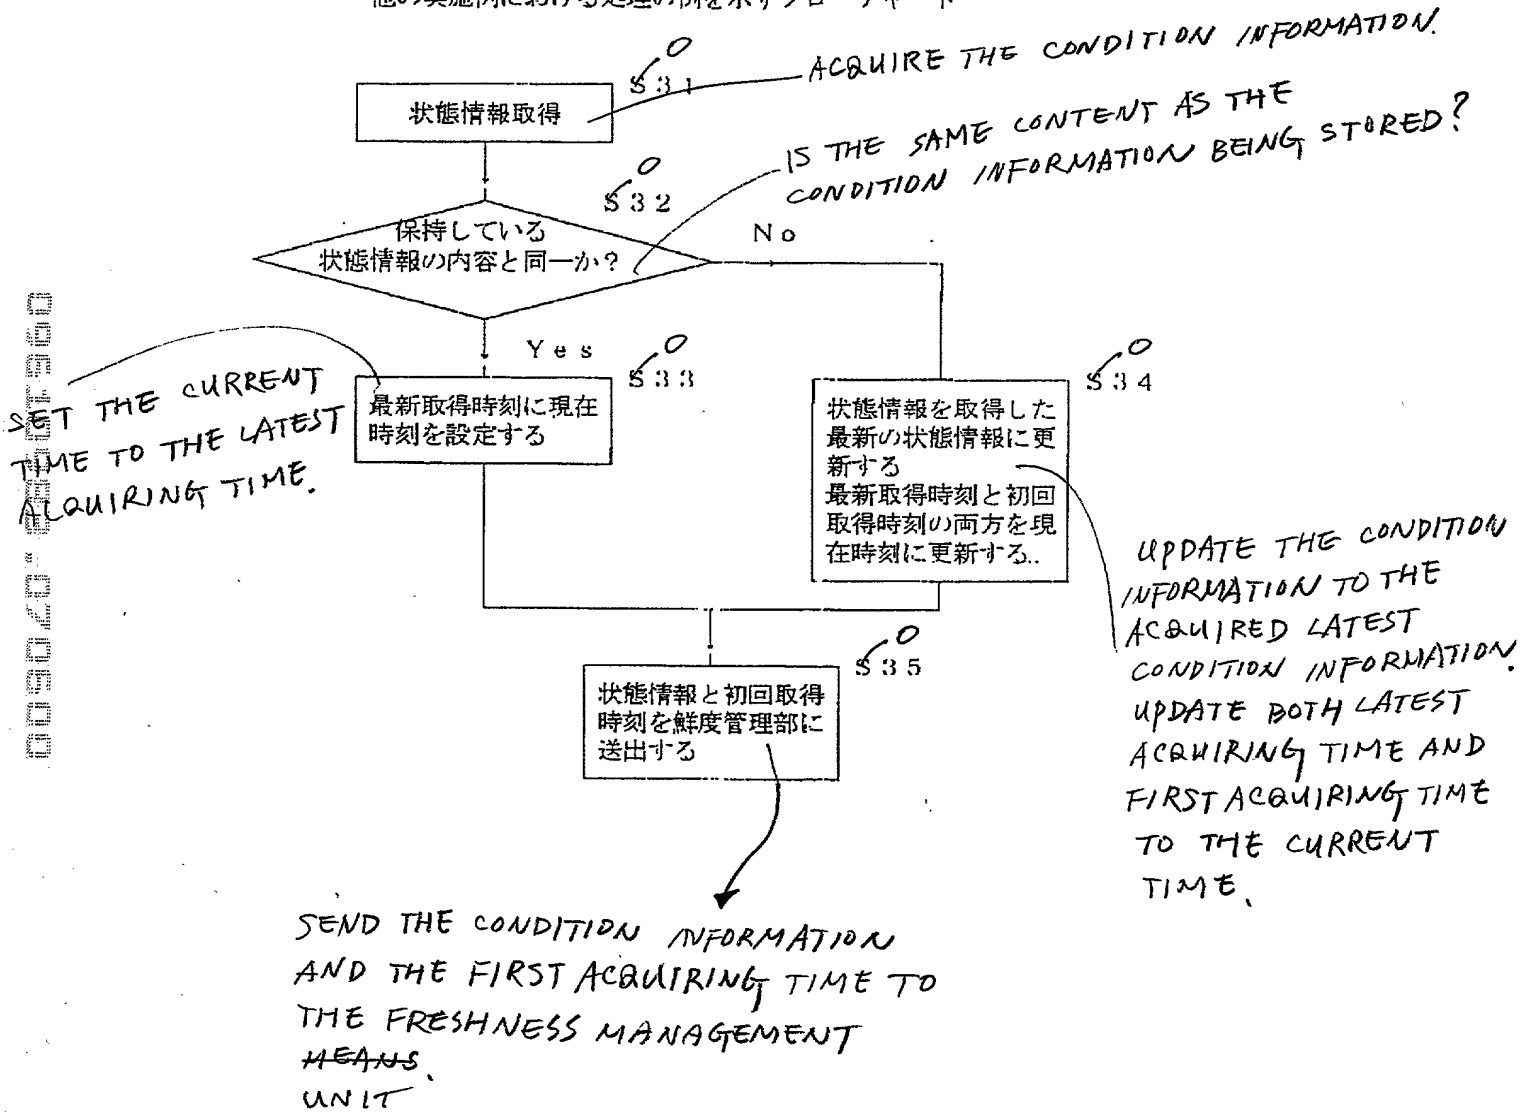 他の実施例における処理の例を示すフローチャート
S31
O
状態情報取得
ACQUIRE THE CONDITION INFORMATION.
S32
O
IS THE SAME CONTENT AS THE
CONDITION INFORMATION BEING STORED?
保持している
状態情報の内容と同一か?
No
Yes
S33
O
最新取得時刻に現在
時刻を設定する
SET THE CURRENT
TIME TO THE LATEST
ACQUIRING TIME.
S34
O
状態情報を取得した
最新の状態情報に更
新する
最新取得時刻と初回
取得時刻の両方を現
在時刻に更新する..
UPDATE THE CONDITION
INFORMATION TO THE
ACQUIRED LATEST
CONDITION INFORMATION.
UPDATE BOTH LATEST
ACQUIRING TIME AND
FIRST ACQUIRING TIME
TO THE CURRENT
TIME.
S35
O
状態情報と初回取得
時刻を鮮度管理部に
送出する
SEND THE CONDITION INFORMATION
AND THE FIRST ACQUIRING TIME TO
THE FRESHNESS MANAGEMENT
MEANS.
UNIT